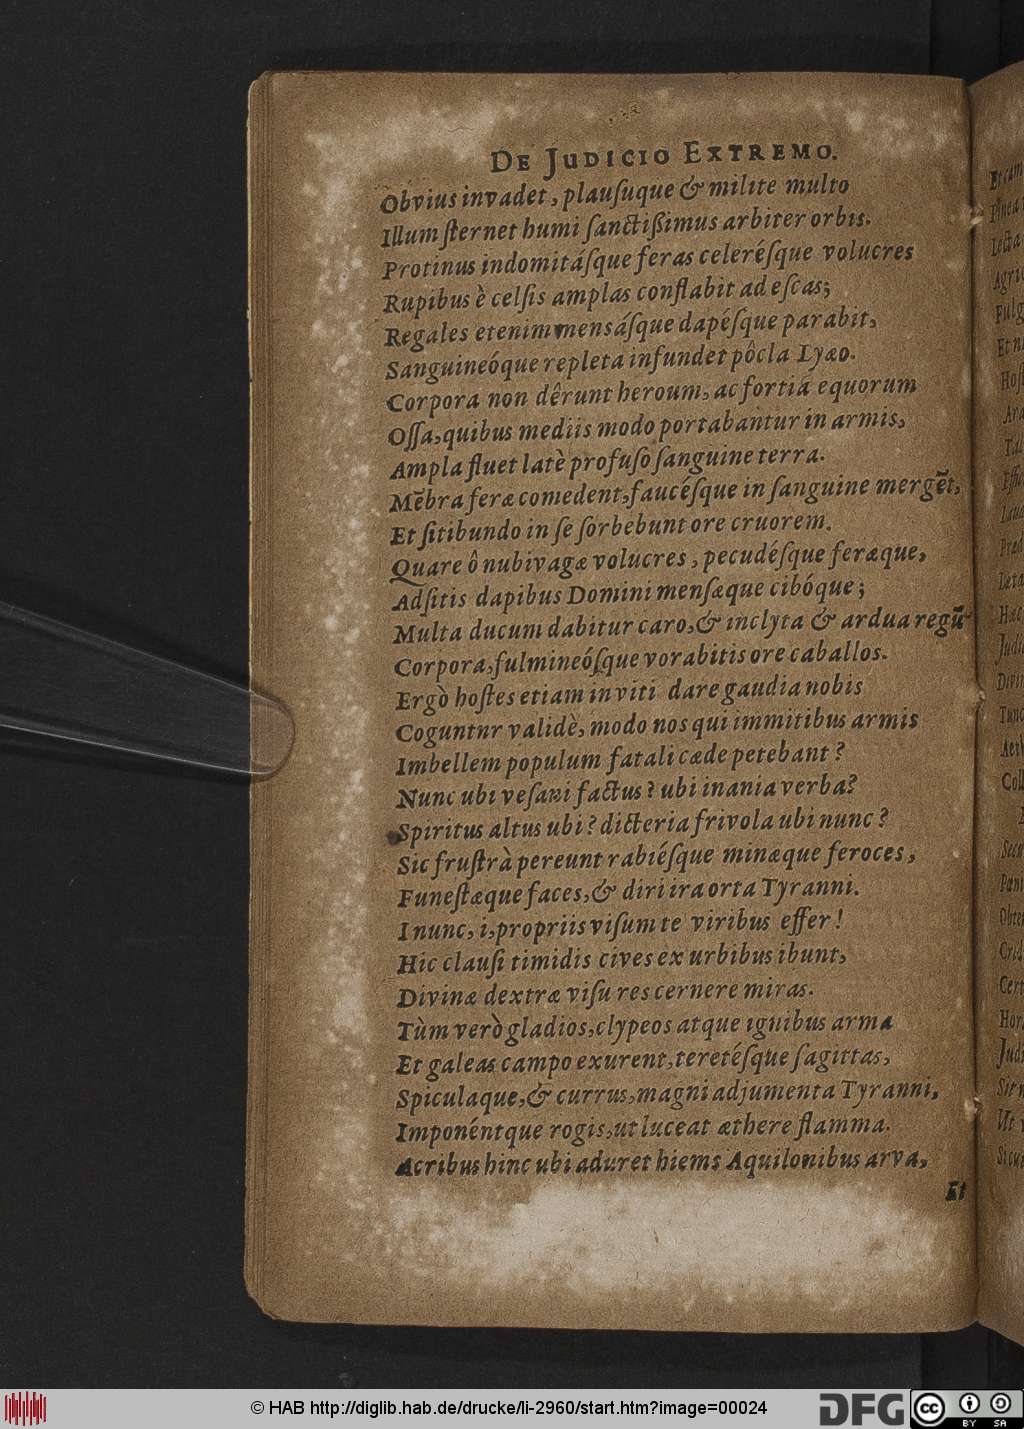 DE JUDICIO EXTREMO.
Obvius invadet, plauſuque & milite multo
Illum ſternet humi ſanctiſſimus arbiter orbis.
Protinus indomitáſque feras celeréſque volucres
Rupibus è celſis amplas conflabit ad eſcas;
Regales etenim mensáſque dapéſque parabit,
Sanguineóque repleta infundet pôcla Lyæo.
Corpora non dêrunt heroum, ac fortia equorum
Oſſa, quibus mediis modo portabantur in armis,
Ampla fluet latè profuſo ſanguine terra.
Mēbra feræ comedent, faucéſque in ſanguine mergēt,
Et ſitibundo in ſe ſorbebunt ore cruorem.
Quare ô nubivagæ volucres, pecudéſque feræque,
Adſitis dapibus Domini menſæque cibóque;
Multa ducum dabitur caro, & inclyta & ardua regū
Corpora, fulmineóſque vorabitis ore caballos.
Ergò hoſtes etiam inviti dare gaudia nobis
Coguntnr validè, modo nos qui immitibus armis
Imbellem populum fatali cæde petebant?
Nunc ubi veſani factus? ubi inania verba?
Spiritus altus ubi? dicteria frivola ubi nunc?
Sic fruſtrà pereunt rabiéſque minæque feroces,
Funeſtæque faces, & diri ira orta Tyranni.
I nunc, i, propriis viſum te viribus effer!
Hic clauſi timidis cives ex urbibus ibunt,
Divinæ dextræ viſu res cernere miras.
Tùm verò gladios, clypeos atque ignibus arma
Et galeas campo exurent, teretéſque ſagittas,
Spiculaque, & currus, magni adjumenta Tyranni,
Imponéntque rogis, ut luceat æthere flamma.
Acribus hinc ubi aduret hiems Aquilonibus arva,
Et
© HAB http://diglib.hab.de/drucke/li-2960/start.htm?image=00024
DFG
cc BY SA